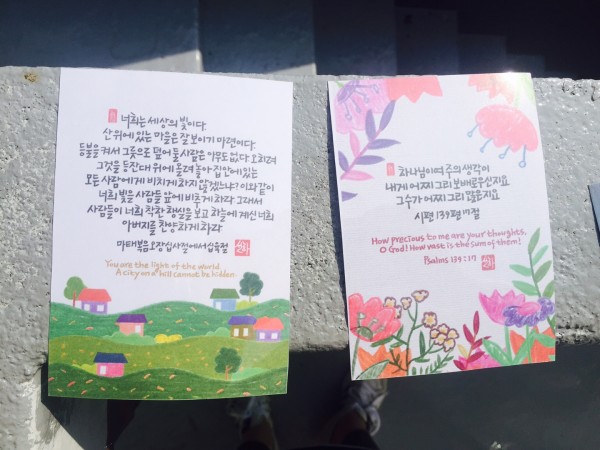 너희는 세상의 빛이다.
산 위에 있는 마을은 잘 보이기 마련이다.
등불을 켜서 그릇으로 덮어 둘 사람은 아무도 없다. 오히려
그것을 등잔대 위에 올려 놓아 집 안에 있는
모든 사람에게 비치게 하지 않겠느냐? 이와같이
너희 빛을 사람들 앞에 비추게 하라 그래서
사람들이 너희 착한 행실을 보고 하늘에 계신 너희
아버지를 찬양하게 하라
마태복음 5장 십사절에서 십육절
You are the light of the world
A city on a hill cannot be hidden
하나님이여 주의 생각이
내게 어찌 그리 보배로우신지요
그 수가 어찌 그리 많은지요
시편 139편 17절
How precious to me are your thoughts,
O God! How vast is the sum of them!
Psalms 139 : 17